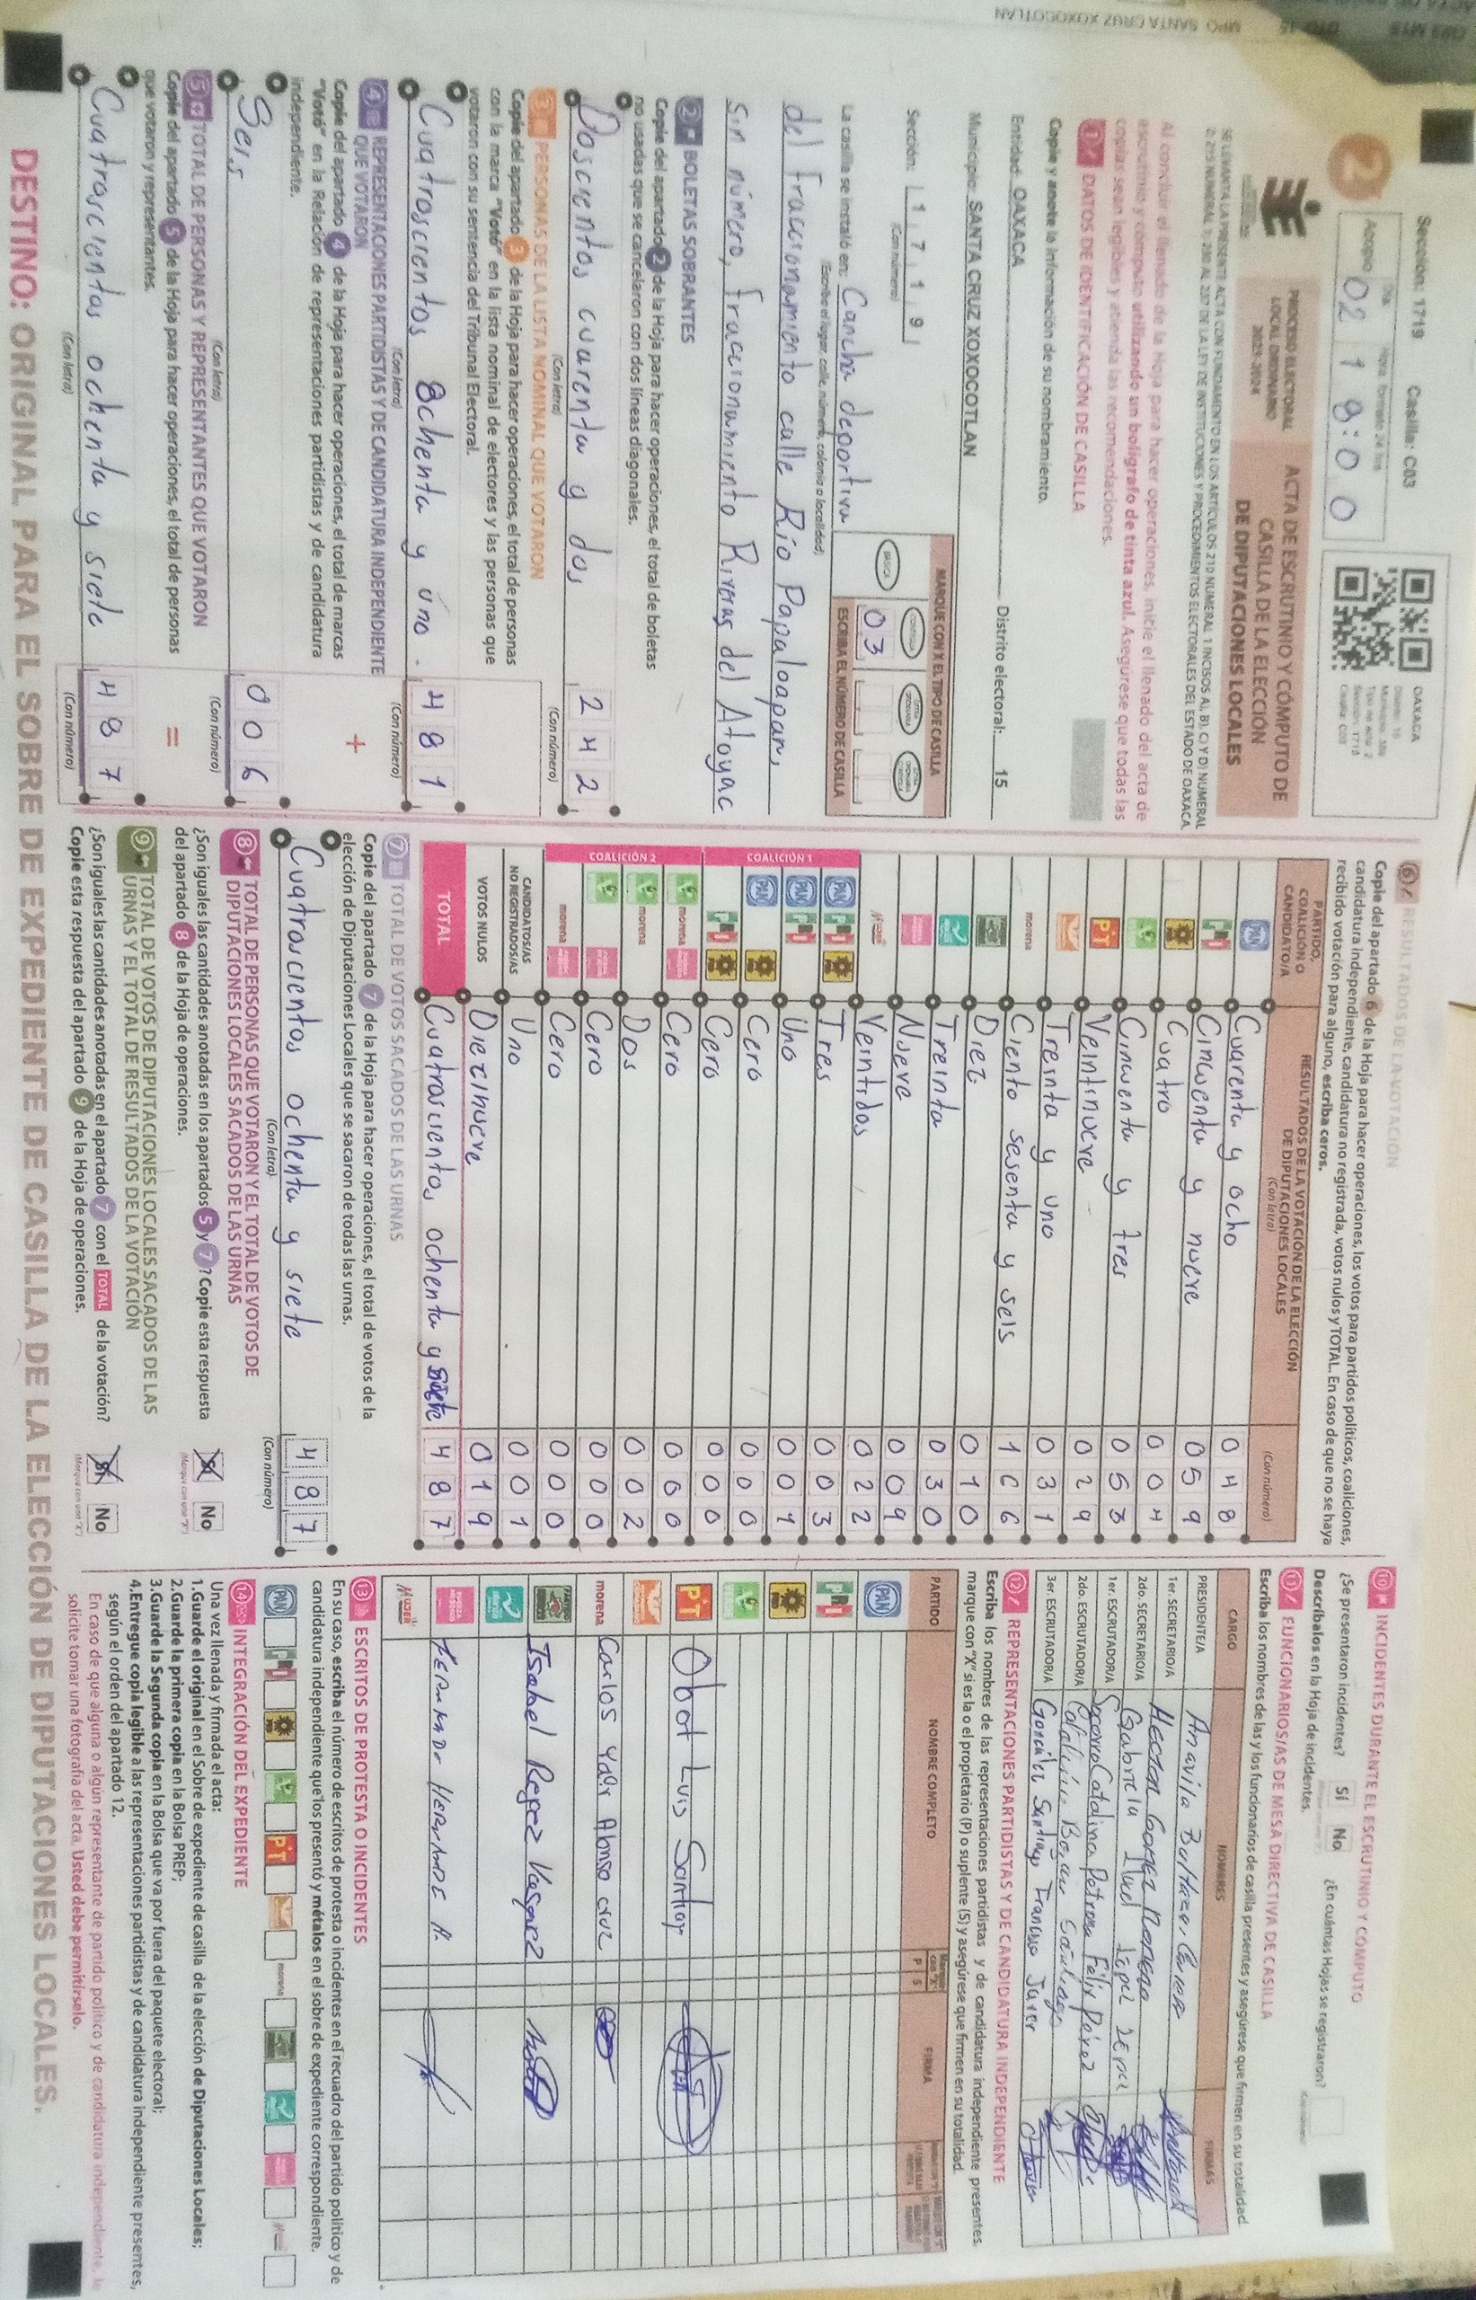 Sección: 1719 Casilla: C03
2
Acopio
02 18:00
PROCESO ELECTORAL
LOCAL ORDINARIO
2023-2024
ACTA DE ESCRUTINIO Y CÓMPUTO DE
CASILLA DE LA ELECCIÓN
DE DIPUTACIONES LOCALES
OAXACA
Al concluir el llenado de la Hoja para hacer operaciones, inicie el llenado del acta de
escrutinio y cómputo utilizando un bolígrafo de tinta azul. Asegúrese que todas las
copias sean legibles y atienda las recomendaciones.
1 DATOS DE IDENTIFICACIÓN DE CASILLA
Copie y anote la información de su nombramiento.
Entidad: OAXACA Distrito electoral: 15
Municipio: SANTA CRUZ XOXOCOTLAN
Sección: 1 7 1 9
(Con número)
MARQUE CON X EL TIPO DE CASILLA
ESCRIBA EL NÚMERO DE CASILLA
03
La casilla se instaló en: Cancha deportiva
(Escriba el lugar: calle, número, colonia o localidad)
del Fraccionamiento calle Río Papaloapan,
sin número, Fraccionamiento Riveras del Atoyac
2 BOLETAS SOBRANTES
Copie del apartado 2 de la Hoja para hacer operaciones, el total de boletas
no usadas que se cancelaron con dos líneas diagonales.
Doscientos cuarenta y dos 242
(Con letra) (Con número)
3 PERSONAS DE LA LISTA NOMINAL QUE VOTARON
Copie del apartado 3 de la Hoja para hacer operaciones, el total de personas
con la marca "Votó" en la lista nominal de electores y las personas que
votaron con su sentencia del Tribunal Electoral.
Cuatroscientos ochenta y uno. 481
(Con letra) (Con número)
4 REPRESENTACIONES PARTIDISTAS Y DE CANDIDATURA INDEPENDIENTE
QUE VOTARON
Copie del apartado 4 de la Hoja para hacer operaciones, el total de marcas
"Votó" en la Relación de representaciones partidistas y de candidatura
independiente.
+
Seis 006
(Con letra) (Con número)
5 TOTAL DE PERSONAS Y REPRESENTANTES QUE VOTARON
Copie del apartado 5 de la Hoja para hacer operaciones, el total de personas
que votaron y representantes.
=
Cuatroscientos ochenta y siete 487
(Con letra) (Con número)
6 RESULTADOS DE LA VOTACIÓN
Copie del apartado 6 de la Hoja para hacer operaciones, los votos para partidos políticos, coaliciones,
candidatura independiente, candidatura no registrada, votos nulos y TOTAL. En caso de que no se haya
recibido votación para alguno, escriba ceros.
PARTIDO,
COALICIÓN O
CANDIDATO/A
RESULTADOS DE LA VOTACIÓN DE LA ELECCIÓN
DE DIPUTACIONES LOCALES
(Con letra) (Con número)
PAN Cuarenta y ocho 048
PRI Cincuenta y nueve 059
Cuatro 004
Cincuenta y tres 053
PT Veintinueve 029
Treinta y uno 031
morena Ciento sesenta y seis 166
Diez 010
Treinta 030
Nueve 009
Mujer Veintidos 022
COALICIÓN 1
PAN PRI Tres 003
PAN PRI Uno 001
PAN Cero 000
PRI Cero 000
COALICIÓN 2
morena Cero 000
morena Dos 002
Cero 000
morena Cero 000
CANDIDATOS/AS
NO REGISTRADOS/AS Uno 001
VOTOS NULOS Diecinueve 019
TOTAL Cuatroscientos ochenta y siete 487
7 TOTAL DE VOTOS SACADOS DE LAS URNAS
Copie del apartado 7 de la Hoja para hacer operaciones, el total de votos de la
elección de Diputaciones Locales que se sacaron de todas las urnas.
Cuatroscientos ochenta y siete 487
(Con letra) (Con número)
8 TOTAL DE PERSONAS QUE VOTARON Y EL TOTAL DE VOTOS DE
DIPUTACIONES LOCALES SACADOS DE LAS URNAS
¿Son iguales las cantidades anotadas en los apartados 5 y 7? Copie esta respuesta
del apartado 8 de la Hoja de operaciones.
Sí No
9 TOTAL DE VOTOS DE DIPUTACIONES LOCALES SACADOS DE LAS
URNAS Y EL TOTAL DE RESULTADOS DE LA VOTACIÓN
¿Son iguales las cantidades anotadas en el apartado 7 con el TOTAL de la votación?
Copie esta respuesta del apartado 9 de la Hoja de operaciones.
Sí No
10 INCIDENTES DURANTE EL ESCRUTINIO Y CÓMPUTO
¿Se presentaron incidentes? Sí No ¿En cuántas Hojas se registraron?
Descríbalos en la Hoja de incidentes.
11 FUNCIONARIOS/AS DE MESA DIRECTIVA DE CASILLA
Escriba los nombres de las y los funcionarios de casilla presentes y asegúrese que firmen en su totalidad.
CARGO NOMBRES FIRMAS
PRESIDENTE/A
1er. SECRETARIO/A Hector Gomez
2do. SECRETARIO/A Gabriela
1er. ESCRUTADOR/A Socorro Catalina Petrona Félix Pérez
2do. ESCRUTADOR/A
3er. ESCRUTADOR/A Santiago Francisco Javier
12 REPRESENTACIONES PARTIDISTAS Y DE CANDIDATURA INDEPENDIENTE
Escriba los nombres de las representaciones partidistas y de candidatura independiente presentes,
marque con "X" si es la o el propietario (P) o suplente (S) y asegúrese que firmen en su totalidad.
PARTIDO NOMBRE COMPLETO P S FIRMA
PAN
PRI
PT Obot Luis Santiago
morena Carlos Yair Alonso cruz
Isabel Reyez Vasquez
Mujer
13 ESCRITOS DE PROTESTA O INCIDENTES
En su caso, escriba el número de escritos de protesta o incidentes en el recuadro del partido político y de
candidatura independiente que los presentó y métalos en el sobre de expediente correspondiente.
PAN PRI PT morena
14 INTEGRACIÓN DEL EXPEDIENTE
Una vez llenada y firmada el acta:
1.Guarde el original en el Sobre de expediente de casilla de la elección de Diputaciones Locales;
2.Guarde la primera copia en la Bolsa PREP;
3.Guarde la Segunda copia en la Bolsa que va por fuera del paquete electoral;
4.Entregue copia legible a las representaciones partidistas y de candidatura independiente presentes,
según el orden del apartado 12.
En caso de que alguna o algún representante de partido político y de candidatura independiente, le
solicite tomar una fotografía del acta. Usted debe permitírselo.
DESTINO: ORIGINAL PARA EL SOBRE DE EXPEDIENTE DE CASILLA DE LA ELECCIÓN DE DIPUTACIONES LOCALES.